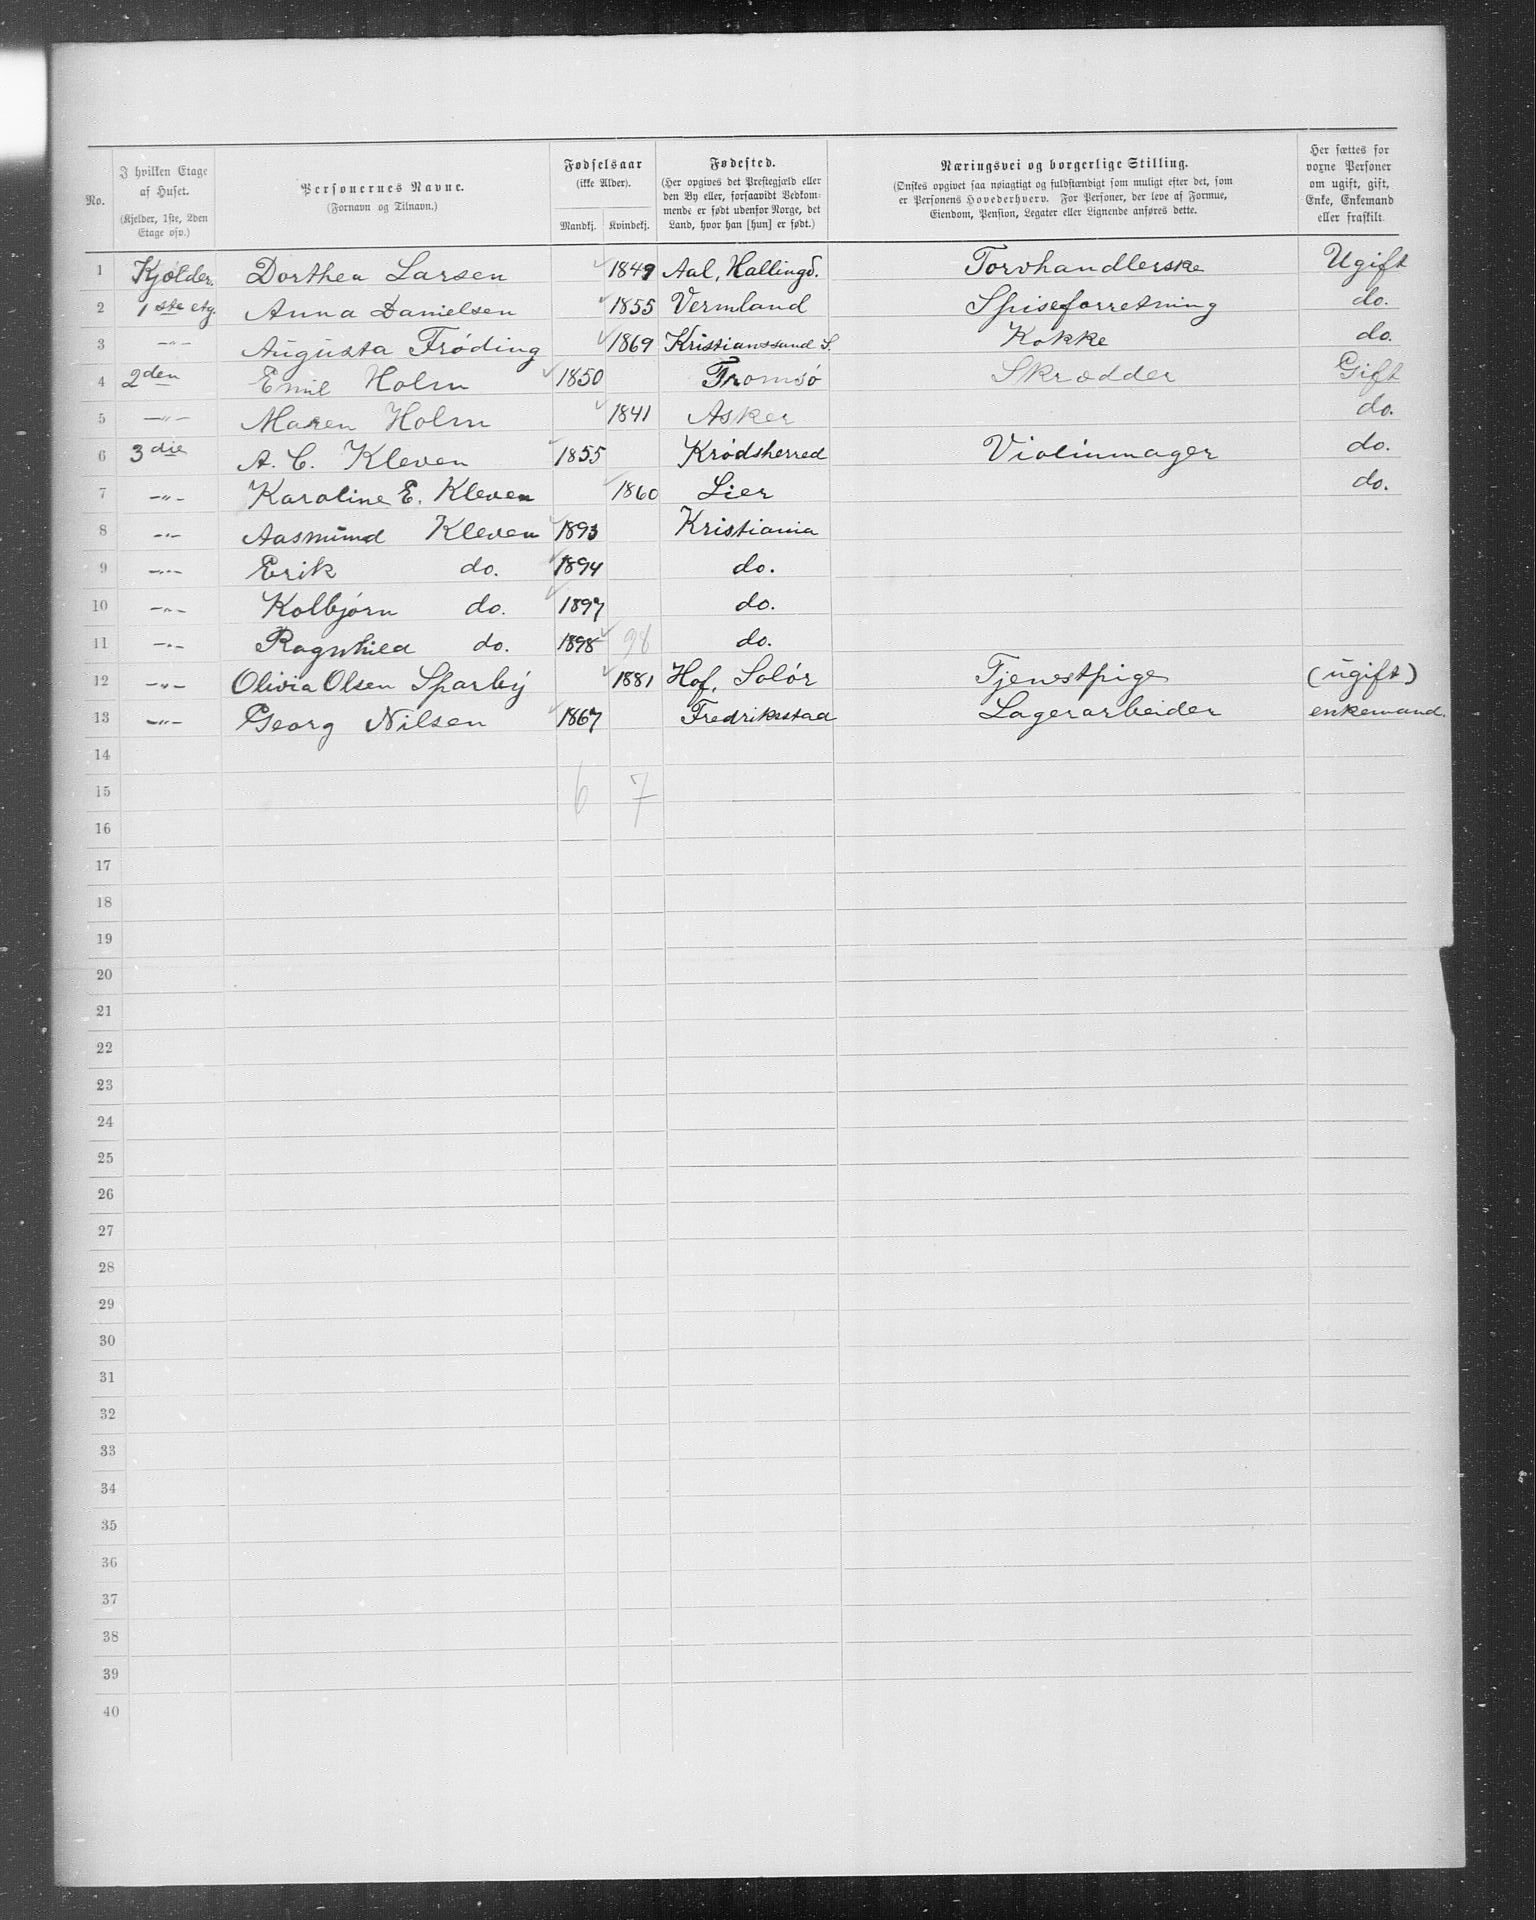 No. | I hvilken Etage af Huset. (Kjelder, 1ste, 2den Etage osv.) | Personernes Navne. (Fornavn og Tilnavn.) | Fødselsaar (ikke Alder). Mandkj. | Kvindekj. | Fødested. (Her opgives det Prestegjæld eller den By eller, forsaavidt Vedkommende er født udenfor Norge, det Land, hvor han [hun] er født.) | Næringsvei og borgerlige Stilling. (Ønskes opgivet saa nøiagtigt og fuldstændigt som muligt efter det, som er Personens Hovederhverv. For Personer, der leve af Formue, Eiendom, Pension, Legater eller Lignende anføres dette. | Her sættes for voxne Personer om ugift, gift, Enke, Enkemand eller fraskilt.
1 Kjølder. Dorthea Larsen 1849 Aal, Hallingd. Torvhandlerske Ugift
2 1ste etg. Anna Danielsen 1855 Vermland Spiseforretning do.
3 —"— Augusta Frøding 1869 Kristianssund S. Kokke do.
4 2den Emil Holm 1850 Tromsø Skrædder Gift
5 —"— Maren Holm 1841 Asker do.
6 3die A. C. Kleven 1855 Krødsherred Violinmager do.
7 —"— Karoline E. Kleven 1860 Lier do.
8 —"— Aasmund Kleven 1893 Kristiania
9 —"— Erik do. 1894 do.
10 —"— Kolbjørn do. 1897 do.
11 —"— Ragnhild do. 1898 98 do.
12 —"— Olivia Olsen Sparby 1881 Hof, Solør Tjenestpige (ugift)
13 —"— Georg Nilsen 1867 Fredrikstad Lagerarbeider enkemand.
14
15 6 7
16
17
18
19
20
21
22
23
24
25
26
27
28
29
30
31
32
33
34
35
36
37
38
39
40